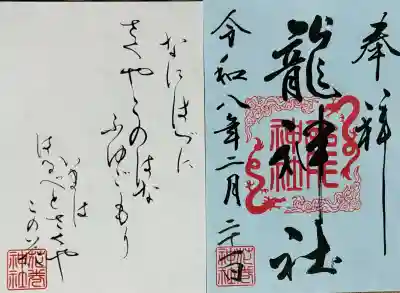 奉拝
龍神社
龍神社
令和八年二月
なにはづに
さくやこのはな
ふゆごもり
いまは
はるべとさくや
このはな